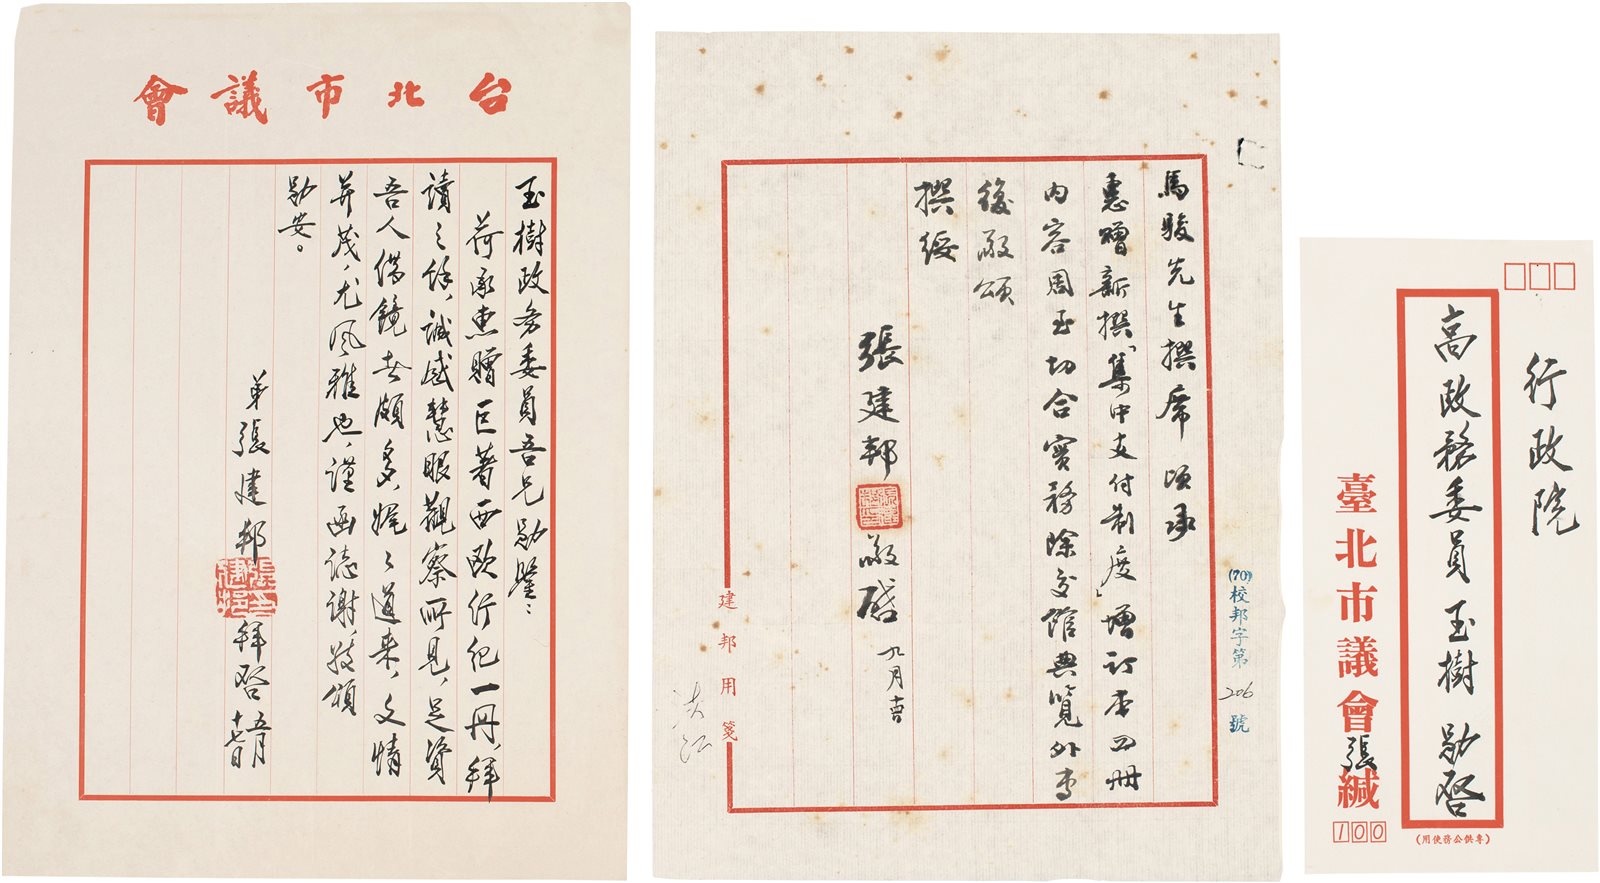 台北市議會
玉樹政務委員吾兄勛鑒：
荷承惠贈巨著西歐行紀一冊，拜
讀之餘，誠感慧眼觀察所見，足資
吾人借鏡者頗多，娓々道來，文情
并茂，尤風雅也，謹函誌謝，敬頌
勛安。
弟張建邦拜啓 五月十七日
馬駿先生撰席 頃承
惠贈新撰「集中支付制度」增訂本四冊
內容周至切合實務除交館典覽外專
復敬頌
撰綏
張建邦 敬啓 九月
建邦用箋
淡江
(70)校邦字第206號
行政院
高政務委員玉樹 勛啓
臺北市議會張緘
100
(專供公務使用)